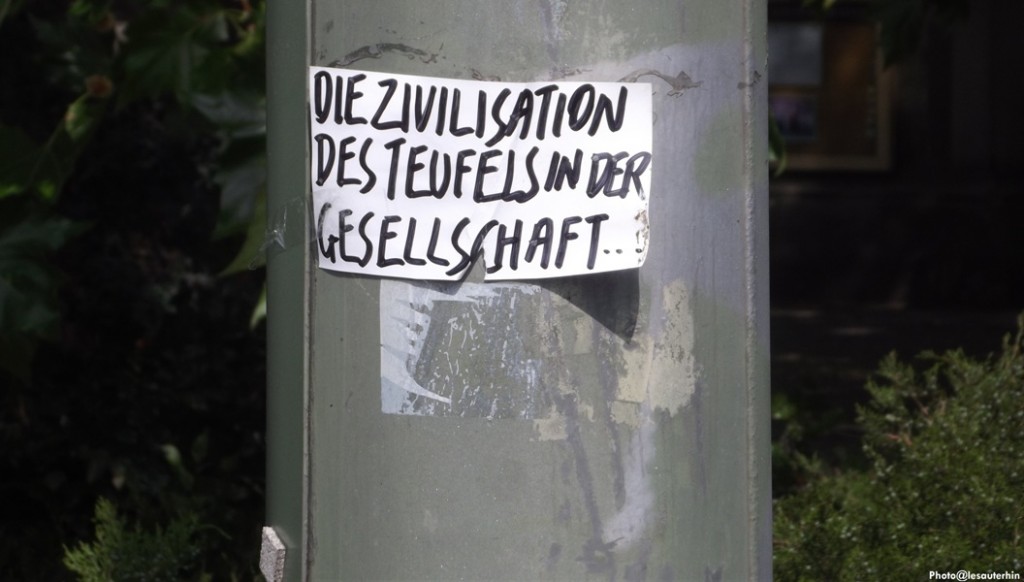 DIE ZIVILISATION
DES TEUFELS IN DER
GESELLSCHAFT...
Photo@lesauterhin